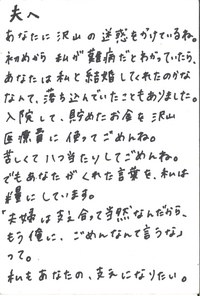 夫へ
あなたに沢山の迷惑をかけているね。
初めから私が難病だとわかっていたら、
あなたは私と結婚してくれたのかな
なんて、落ち込んでいたこともありました。
入院して、貯めたお金を沢山
医療費に使ってごめんね。
苦しくて八つ当たりしてごめんね。
でもあなたがくれた言葉を、私は
糧にしています。
「夫婦は支え合って当然なんだから、
もう俺に、ごめんなんて言うな」
って。
私もあなたの、支えになりたい。